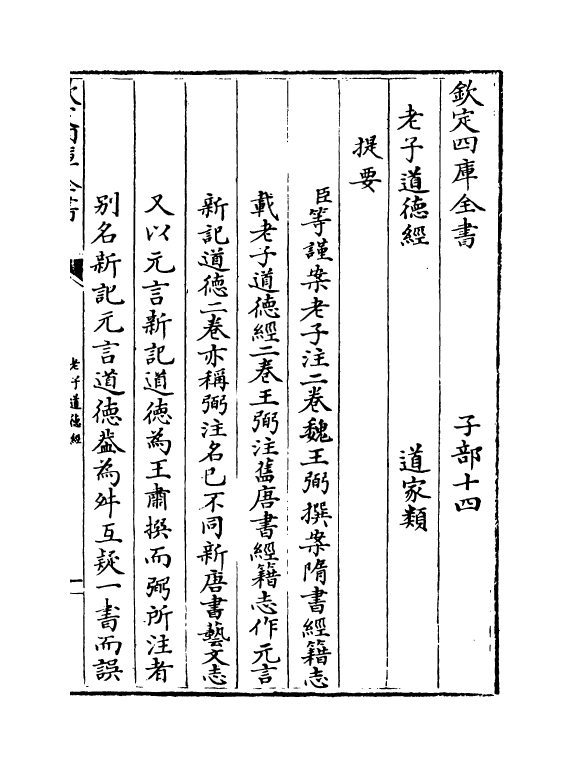 欽定四庫全書　　　子部十四
老子道德經　　　道家類
提要
臣等謹案老子注二卷魏王弼撰案隋書經籍志
載老子道德經二卷王弼注舊唐書經籍志作元言
新記道德二卷亦稱弼注名已不同新唐書藝文志
又以元言新記道德為王肅撰而弼所注者
別名新記元言道德益為舛互疑一書而誤
老子道德經
一